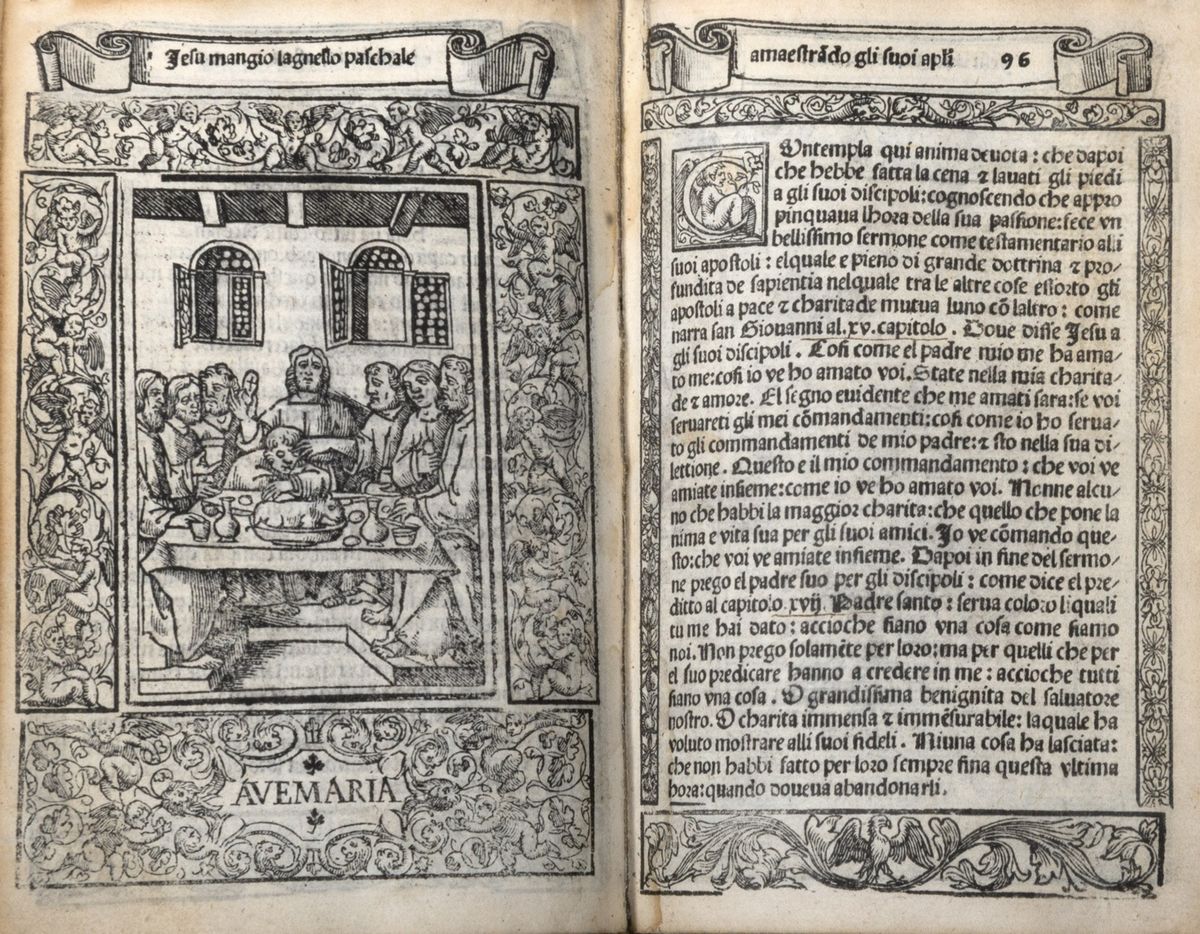 Jesu mangio lagnello paschale
AVEMARIA
amaestrādo gli suoi apłi 96
COntempla qui anima deuota : che dapoi
che hebbe fatta la cena ⁊ lauati gli piedi
a gli suoi discipoli:cognoscendo che appro
pinquaua lhora della sua passione:fece vn
bellissimo sermone come testamentario alli
suoi apostoli : elquale e pieno di grande dottrina ⁊ pro/
fundita de sapientia nelquale tra le altre cose essorto gli
apostoli a pace ⁊ charita de mutua luno cō laltro : come
narra san Giouanni al.xv.capitolo . Doue disse Jesu a
gli suoi discipoli . Cosi come el padre mio me ha ama/
to me:cosi io ve ho amato voi.State nella mia charita/
de ⁊ amore. El segno euidente che me amati sara:se voi
seruareti gli mei cōmandamenti:cosi come io ho serua/
to gli commandamenti de mio padre:⁊ sto nella sua di/
lettione . Questo e il mio commandamento : che voi ve
amiate insieme:come io ve ho amato voi. Nonne alcu/
no che habbi la maggior charita: che quello che pone la
nima e vita sua per gli suoi amici. Jo ve cōmando que/
sto:che voi ve amiate insieme. Dapoi in fine del sermo/
ne prego el padre suo per gli discipoli : come dice el pre/
ditto al capitolo xvij. Padre santo : serua coloro liquali
tu me hai dato : accioche siano vna cosa come siamo
noi. Non prego solamēte per loro: ma per quelli che per
el suo predicare hanno a credere in me : accioche tutti
siano vna cosa . O grandissima benignita del saluatore
nostro. O charita immensa ⁊ immēsurabile: laquale ha
voluto mostrare alli suoi fideli . Niuna cosa ha lasciata:
che non habbi fatto per loro sempre fina questa vltima
hora:quando doueua abandonarli.